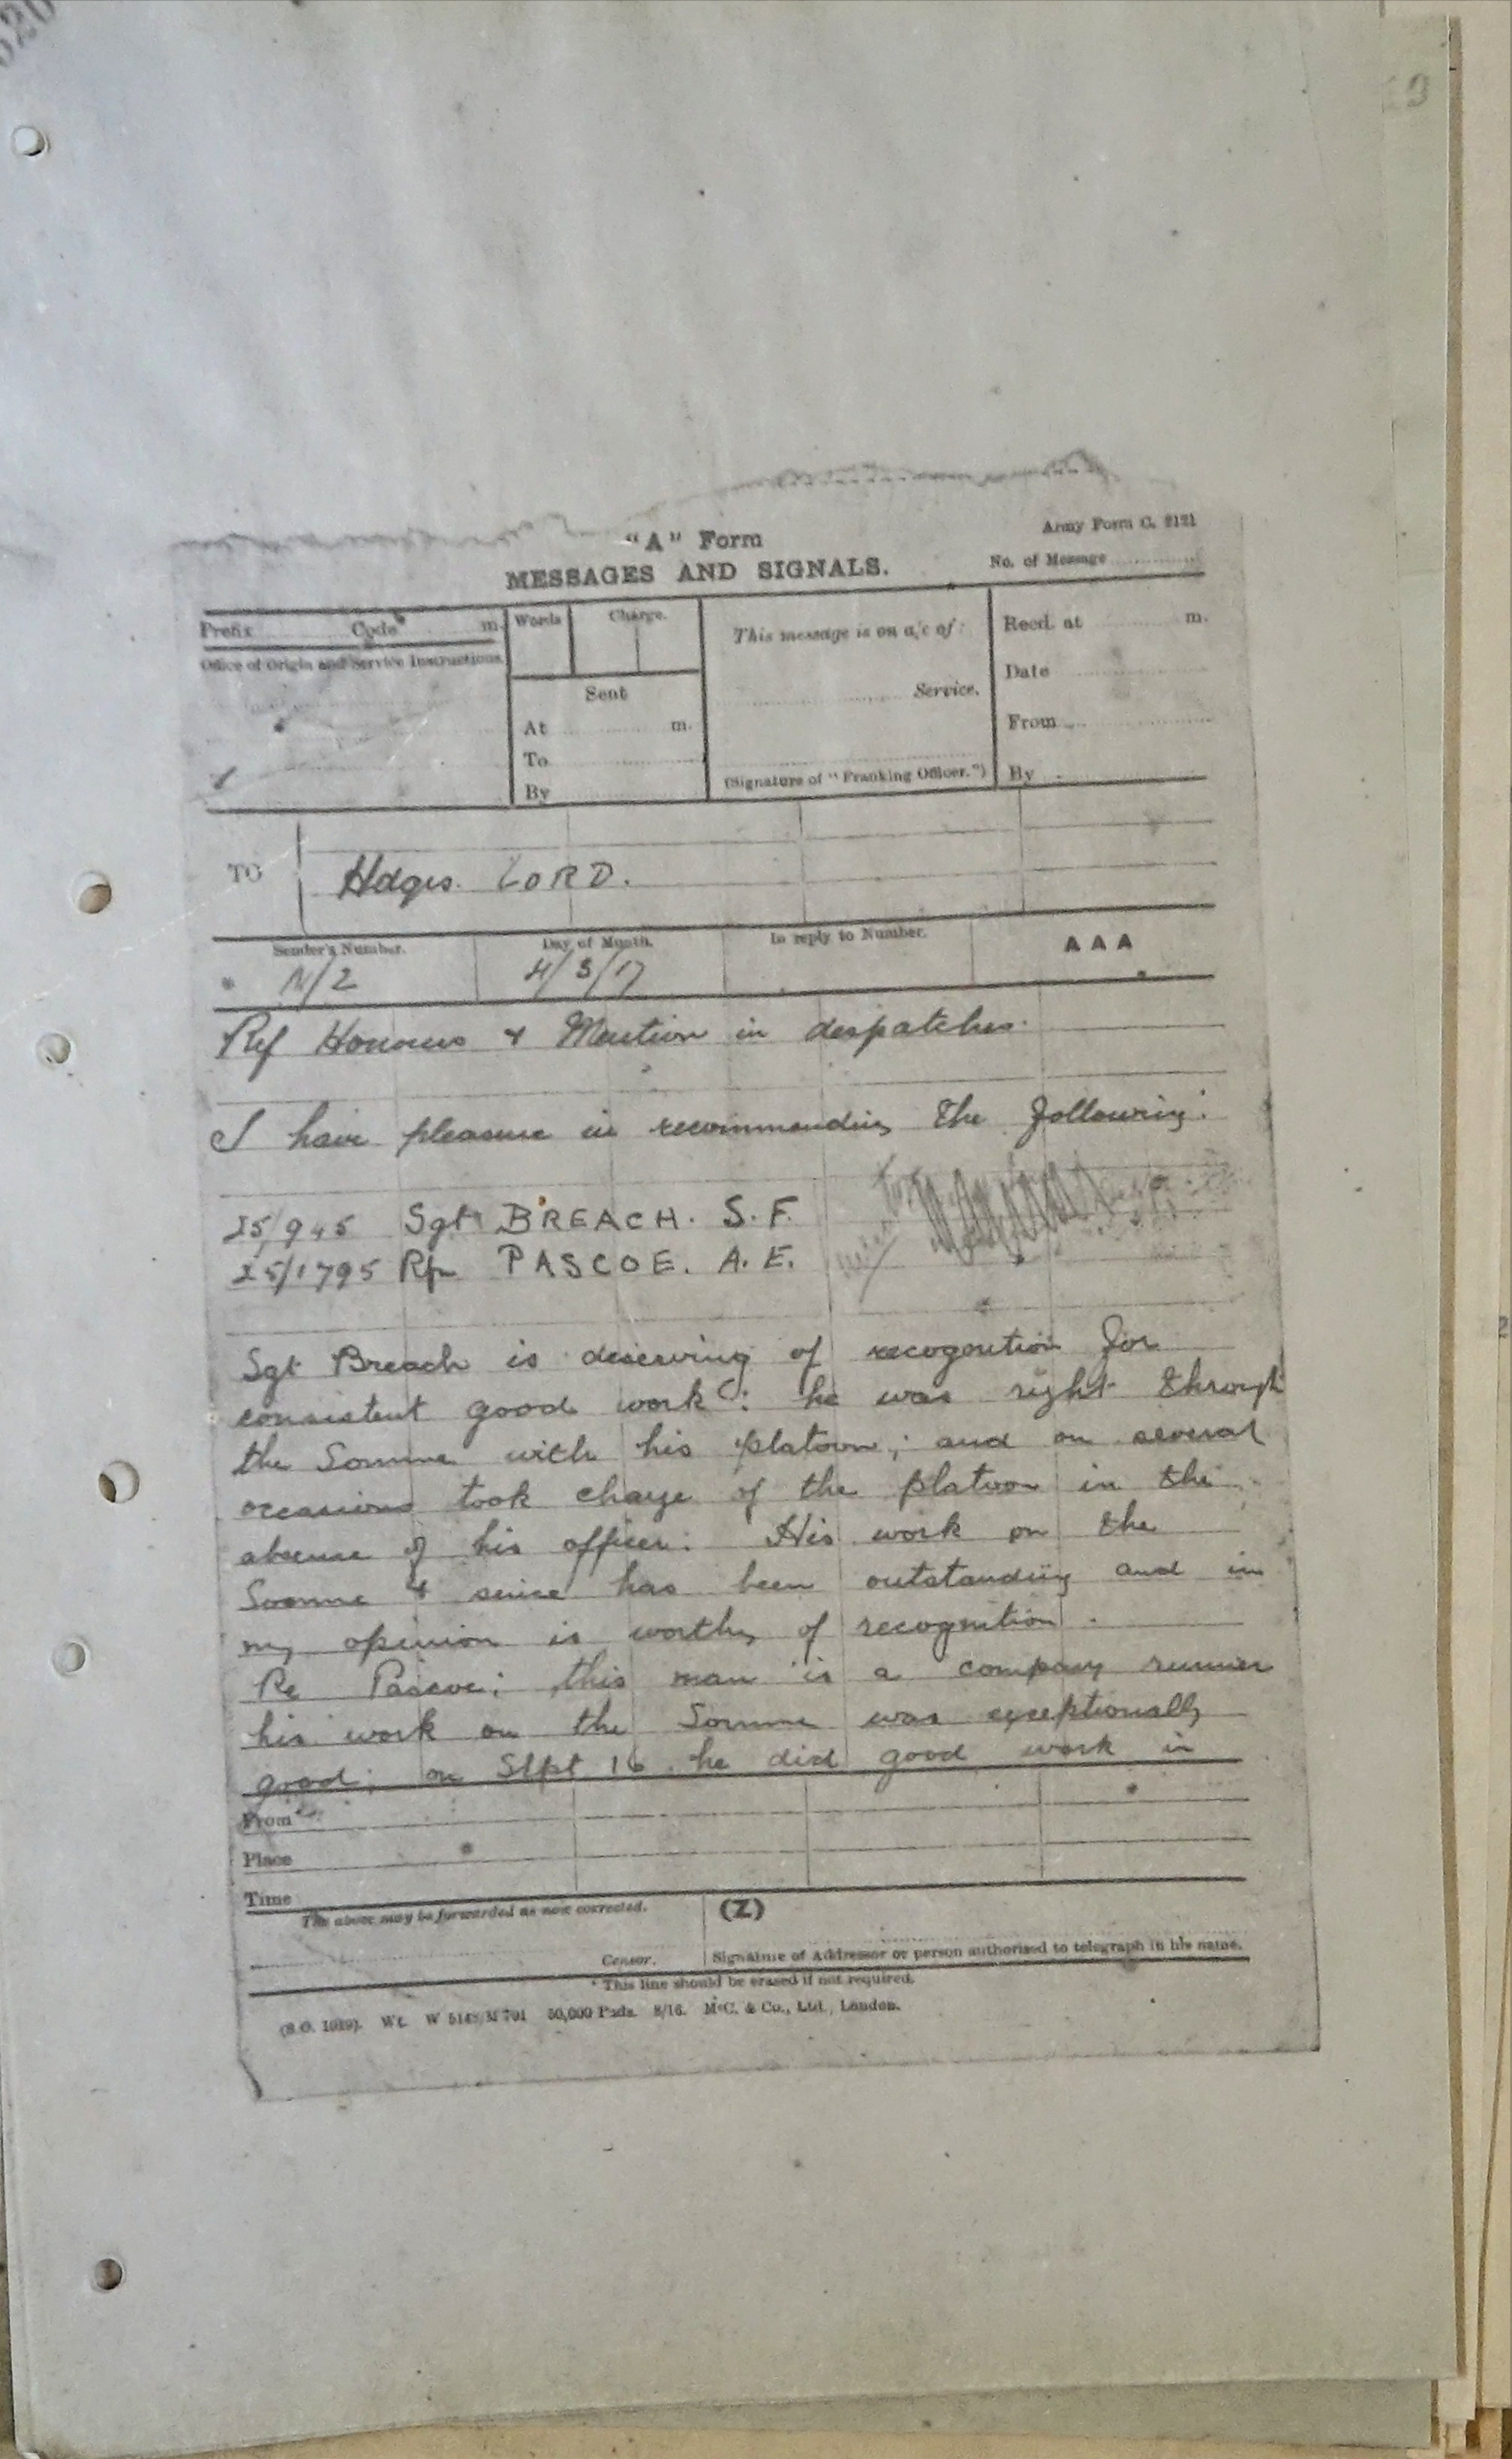 "A" Form
Army Form C. 2121
MESSAGES AND SIGNALS.
No. of Message
Prefix Code m.
Words
Charge.
This message is on a/c of:
Recd. at m.
Office of Origin and Service Instructions.
Sent
Service.
Date
At m.
From
To
By
(Signature of "Franking Officer.")
By
TO
Hdqrs. LORD.
Sender's Number.
Day of Month.
In reply to Number.
AAA
* N/2
4/3/17
Ref Honours & Mention in despatches.
I have pleasure in recommending the following:
25/945 Sgt BREACH. S. F.
25/1795 Rfn PASCOE. A. E.
Sgt Breach is deserving of recognition for
consistent good work: he was right through
the Somme with his platoon; and on several
occasions took charge of the platoon in the
absence of his officer. His work on the
Somme & since has been outstanding and in
my opinion is worthy of recognition.
Re Pascoe: this man is a company runner
his work on the Somme was exceptionally
good; on Sept 16 he did good work in
From
Place
Time
The above may be forwarded as now corrected.
(Z)
Censor.
Signature of Addressor or person authorised to telegraph in his name.
* This line should be erased if not required.
50,000 Pads. 8/16. McC. & Co., Ltd., London.